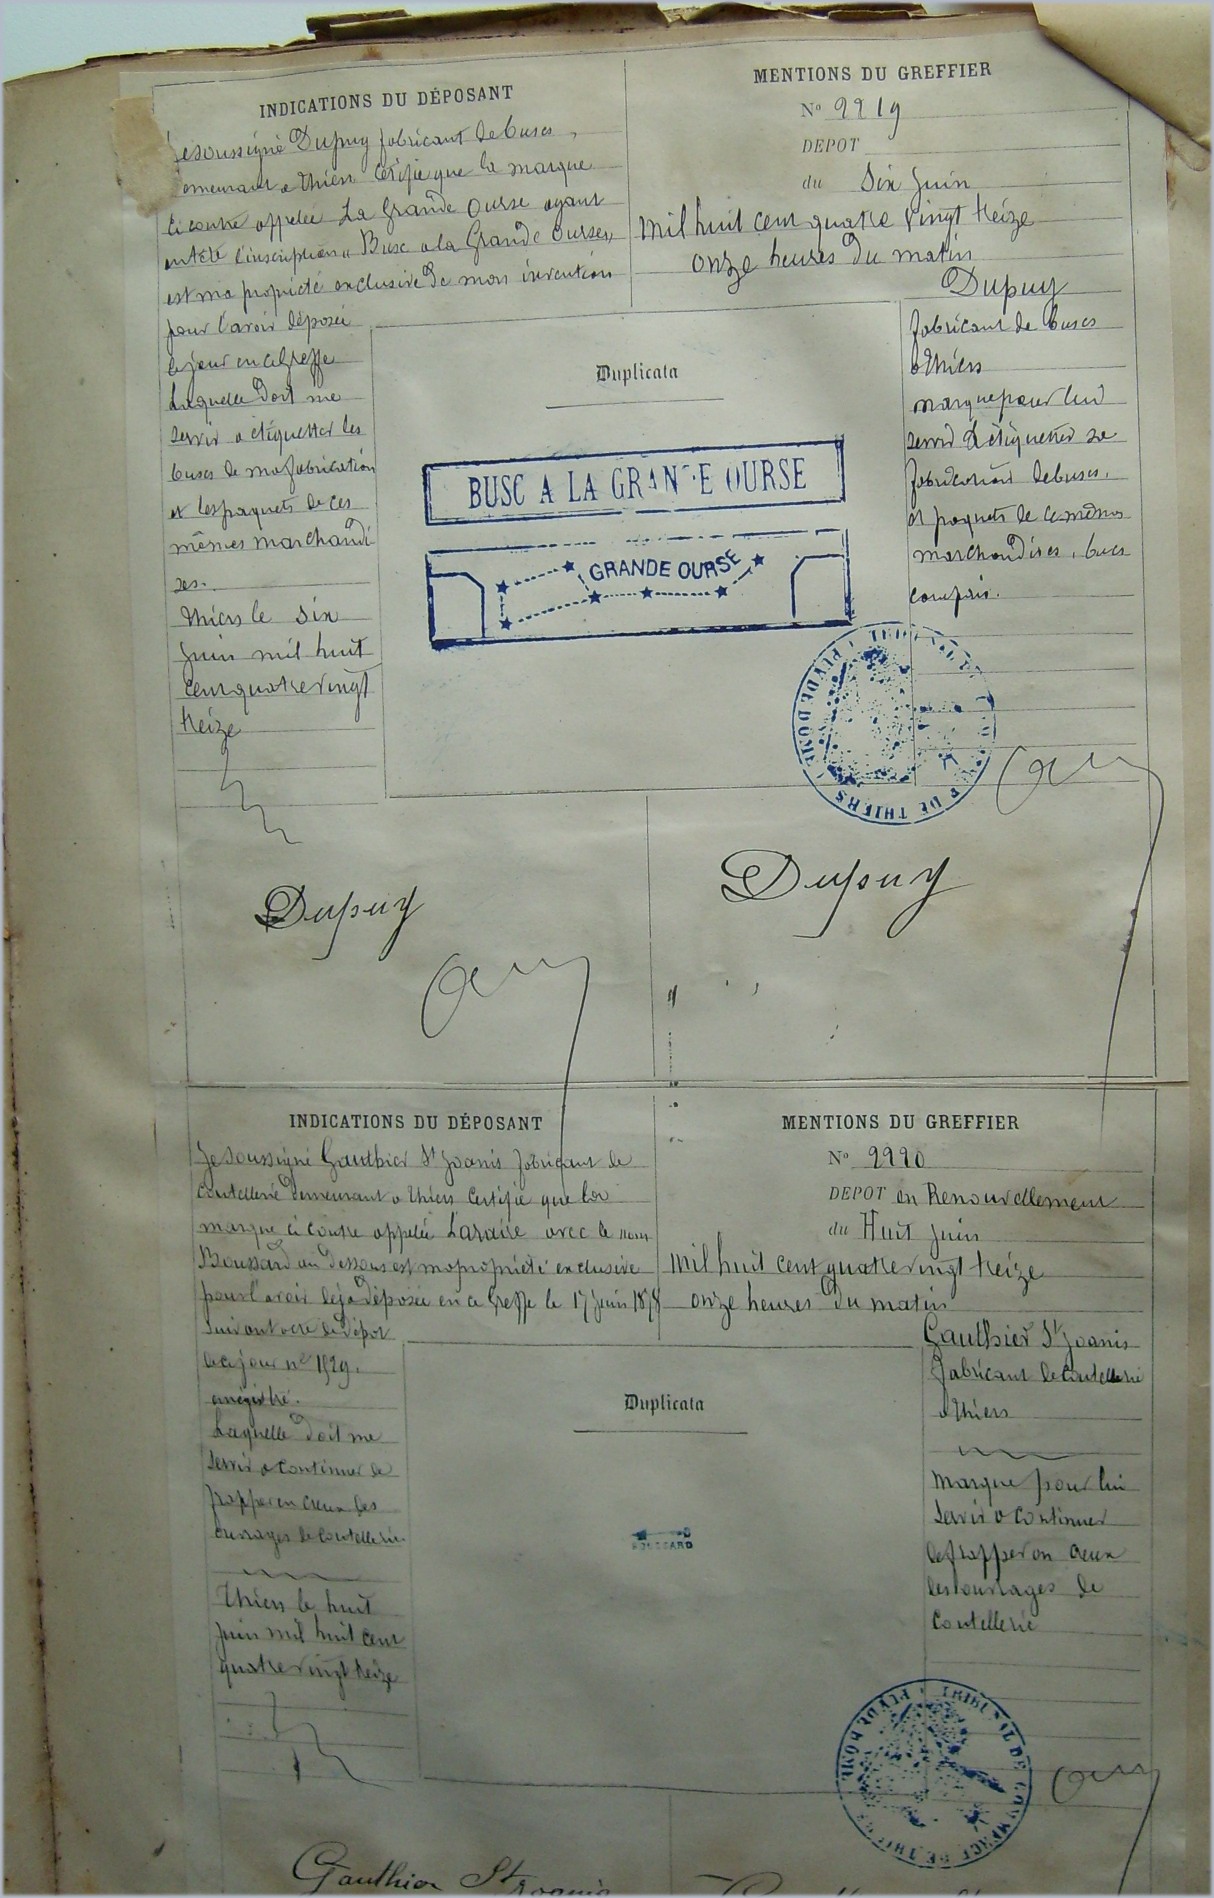 INDICATIONS DU DÉPOSANT
Je soussigné Dupuy fabricant de buscs,
demeurant a Thiers certifie que la marque
ci contre appelée La Grande Ourse ayant
en tête l'inscription "Busc a la Grande Ourse"
est ma propriété exclusive de mon invention
pour l'avoir déposée
ce jour en ce Greffe
Laquelle doit me
servir a étiquetter les
buscs de ma fabrication
et les paquets de ces
mêmes marchandi
ses.
Thiers le six
Juin mil huit
cent quatre vingt
treize
Dupuy
MENTIONS DU GREFFIER
No 2219
DEPOT
du Six Juin
Mil huit cent quatre vingt treize
onze heures du matin
Dupuy
fabricant de buscs
a Thiers
marque pour lui
servir à étiqueter sa
fabrication de buscs,
et paquets de ce mêmes
marchandises, buscs
compris.
Duplicata
BUSC A LA GRANDE OURSE
GRANDE OURSE
PUY DE DOME
DE THIERS
Dupuy
INDICATIONS DU DÉPOSANT
Je soussigné Gauthier St Joanis fabricant de
Coutellerie demeurant a Thiers Certifie que la
marque ci contre appelée L'araire avec le nom
Boussard au dessous est ma propriété exclusive
pour l'avoir déjà déposée en ce Greffe le 17 Juin 1878
suivant acte de dépôt
de ce jour no 1529.
enregistré.
Laquelle doit me
servir a continuer de
frapper en creux les
ouvrages de coutellerie.
Thiers le huit
Juin mil huit cent
quatre vingt treize
MENTIONS DU GREFFIER
No 2220
DEPOT en Renouvellement
du Huit Juin
Mil huit cent quatre vingt treize
onze heures du matin
Gauthier St Joanis
fabricant de coutellerie
a Thiers
marque pour lui
servir a continuer
de frapper en creux
les ouvrages de
Coutellerie
Duplicata
BOUSSARD
TRIBUNAL DE COMMERCE DE THIERS
PUY DE DOME
Gauthier St Joanis